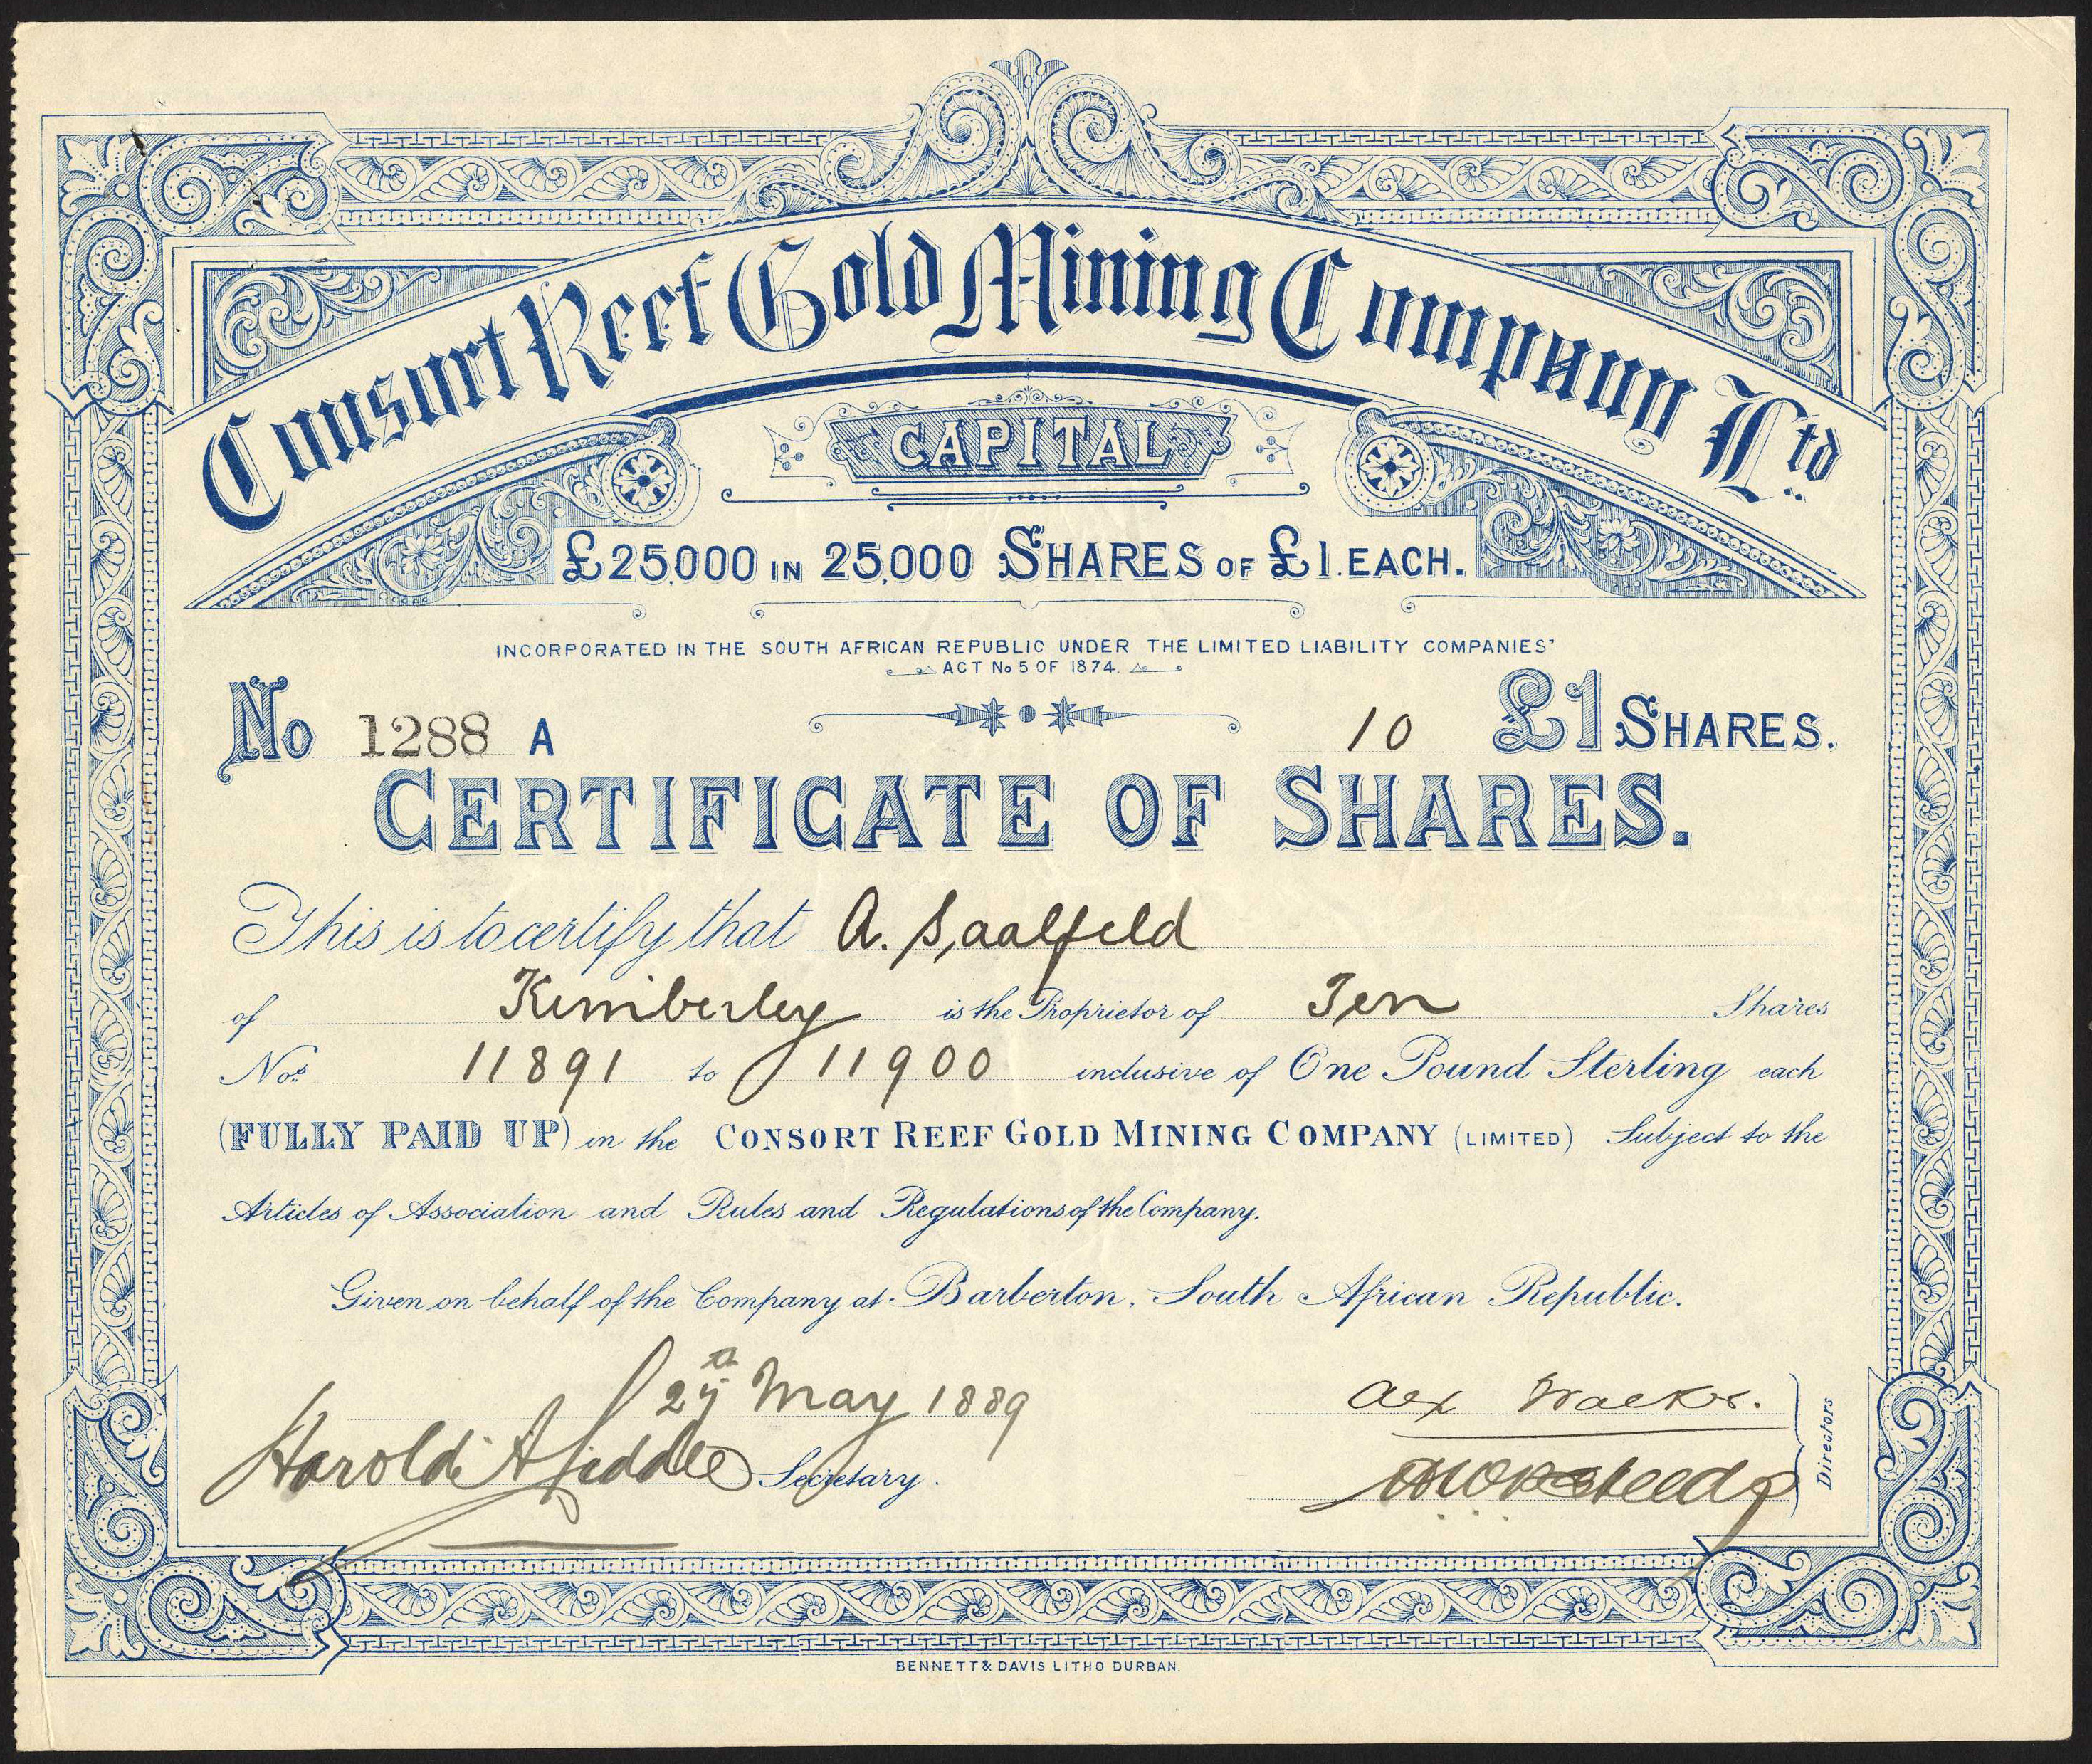 Consort Reef Gold Mining Company Ltd.
CAPITAL
£25,000 IN 25,000 SHARES OF £1. EACH.
INCORPORATED IN THE SOUTH AFRICAN REPUBLIC UNDER THE LIMITED LIABILITY COMPANIES'
ACT No 5 OF 1874.
No 1288 A 10 £1 SHARES.
CERTIFICATE OF SHARES.
This is to certify that A. Saalfeld
of Kimberley is the Proprietor of Ten Shares
Nos 11891 to 11900 inclusive of One Pound Sterling each
(FULLY PAID UP) in the CONSORT REEF GOLD MINING COMPANY (LIMITED) Subject to the
Articles of Association and Rules and Regulations of the Company.
Given on behalf of the Company at Barberton, South African Republic.
27th May 1889
Alex Walker.
Harold Secretary.
Directors
BENNETT & DAVIS LITHO DURBAN.